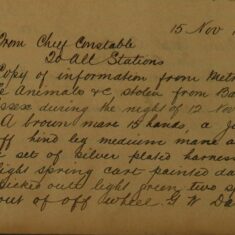 15 Nov 1
From Chief Constable
To All Stations
Copy of information from Met
Animals &c stolen from Ba
ssex during the night of 12 Nov
A brown mare 15 hands, a
off hind leg medium mane a
set of silver plated harness
light spring cart painted da
picked out light green, two sp
out of off wheel. G W Da